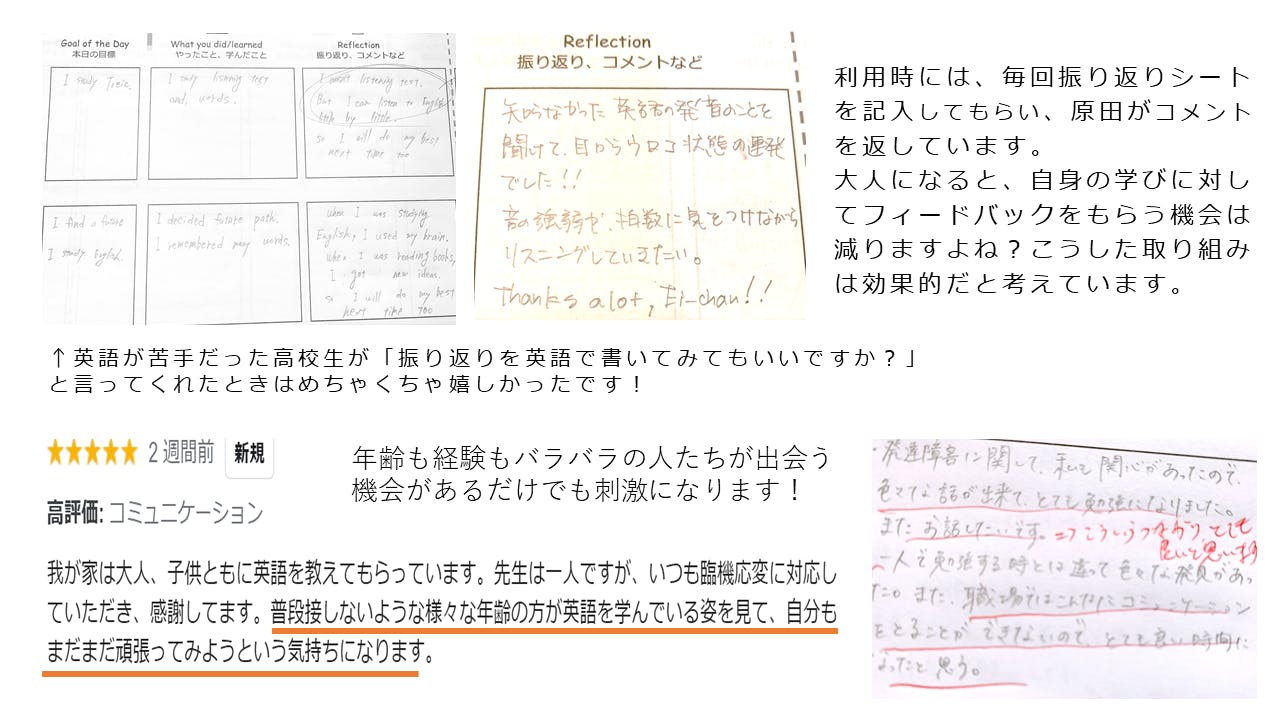 Goal of the Day
本日の目標
What you did/learned
やったこと、学んだこと
Reflection
振り返り、コメントなど
I study Toeic.
I study listening test
and words.
I wasn't listening test.
But I can listen to English
little by little.
so I will do my best
next time too
I find a future
I study English.
I decided future path.
I remembered many words.
When I was studying
English, I used my brain.
when I was reading books,
I got new ideas.
so I will do my best
next time too
Reflection
振り返り、コメントなど
知らなかった英語の発音のことを
聞けて、目からウロコ状態の連発
でした!!
音の強弱や、拍数に気をつけながら
リスニングしていきたい。
Thanks a lot, Ei-chan!!
利用時には、毎回振り返りシート
を記入してもらい、原田がコメント
を返しています。
大人になると、自身の学びに対し
てフィードバックをもらう機会は
減りますよね？こうした取り組み
は効果的だと考えています。
↑英語が苦手だった高校生が「振り返りを英語で書いてみてもいいですか？」
と言ってくれたときはめちゃくちゃ嬉しかったです！
2 週間前 新規
高評価: コミュニケーション
我が家は大人、子供ともに英語を教えてもらっています。先生は一人ですが、いつも臨機応変に対応し
ていただき、感謝してます。普段接しないような様々な年齢の方が英語を学んでいる姿を見て、自分も
まだまだ頑張ってみようという気持ちになります。
年齢も経験もバラバラの人たちが出会う
機会があるだけでも刺激になります！
・発達障害に関して、私も関心があったので、
色々な話が出来て、とても勉強になりました。
またお話したいです。⇒こういうつながり、とても
良いと思います
一人で勉強する時とは違って色々な発見があっ
た。また、職場ではこんなにコミュニケーション
をとることができないので、とても良い時間に
なったと思う。